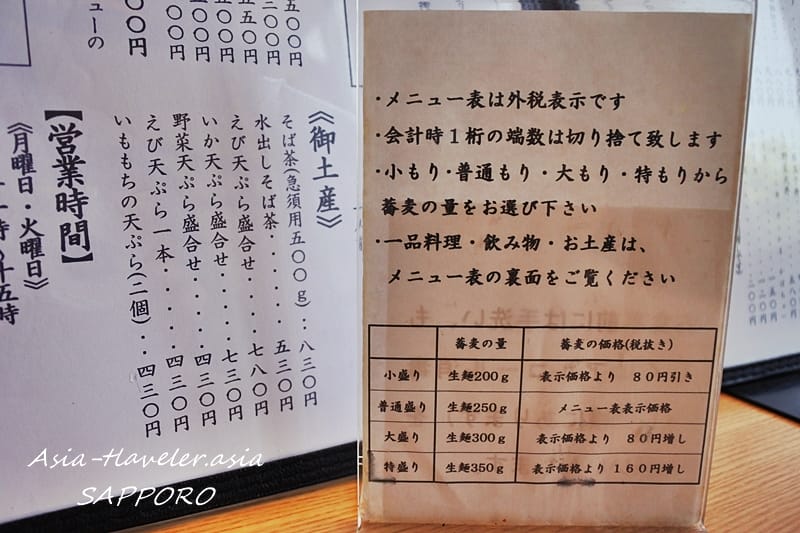 《御土産》
そば茶(急須用五〇〇g)‥八三〇円
水出しそば茶・・・・・五三〇円
えび天ぷら盛合せ・・・七八〇円
いか天ぷら盛合せ・・・七三〇円
野菜天ぷら盛合せ・・・四三〇円
えび天ぷら一本・・・・四三〇円
いももちの天ぷら(二個)・・四三〇円
【営業時間】
《月曜日・火曜日》
・メニュー表は外税表示です
・会計時１桁の端数は切り捨て致します
・小もり・普通もり・大もり・特もりから
蕎麦の量をお選び下さい
・一品料理・飲み物・お土産は、
メニュー表の裏面をご覧ください
蕎麦の量 蕎麦の価格(税抜き)
小盛り 生麺200ｇ 表示価格より ８０円引き
普通盛り 生麺250ｇ メニュー表表示価格
大盛り 生麺300ｇ 表示価格より ８０円増し
特盛り 生麺350ｇ 表示価格より １６０円増し
Asia-Haveler.asia
SAPPORO